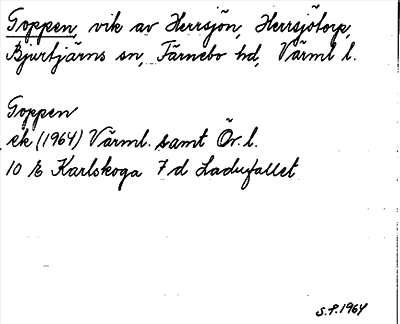 Goppen, vik av Herrsjön, Herrsjötorp,
Bjurtjärns sn, Färnebo hd, Värml l.
Goppen
ek (1964) Värml. samt Ör. l.
10 E Karlskoga 7 d Ladufallet
S.F. 1964